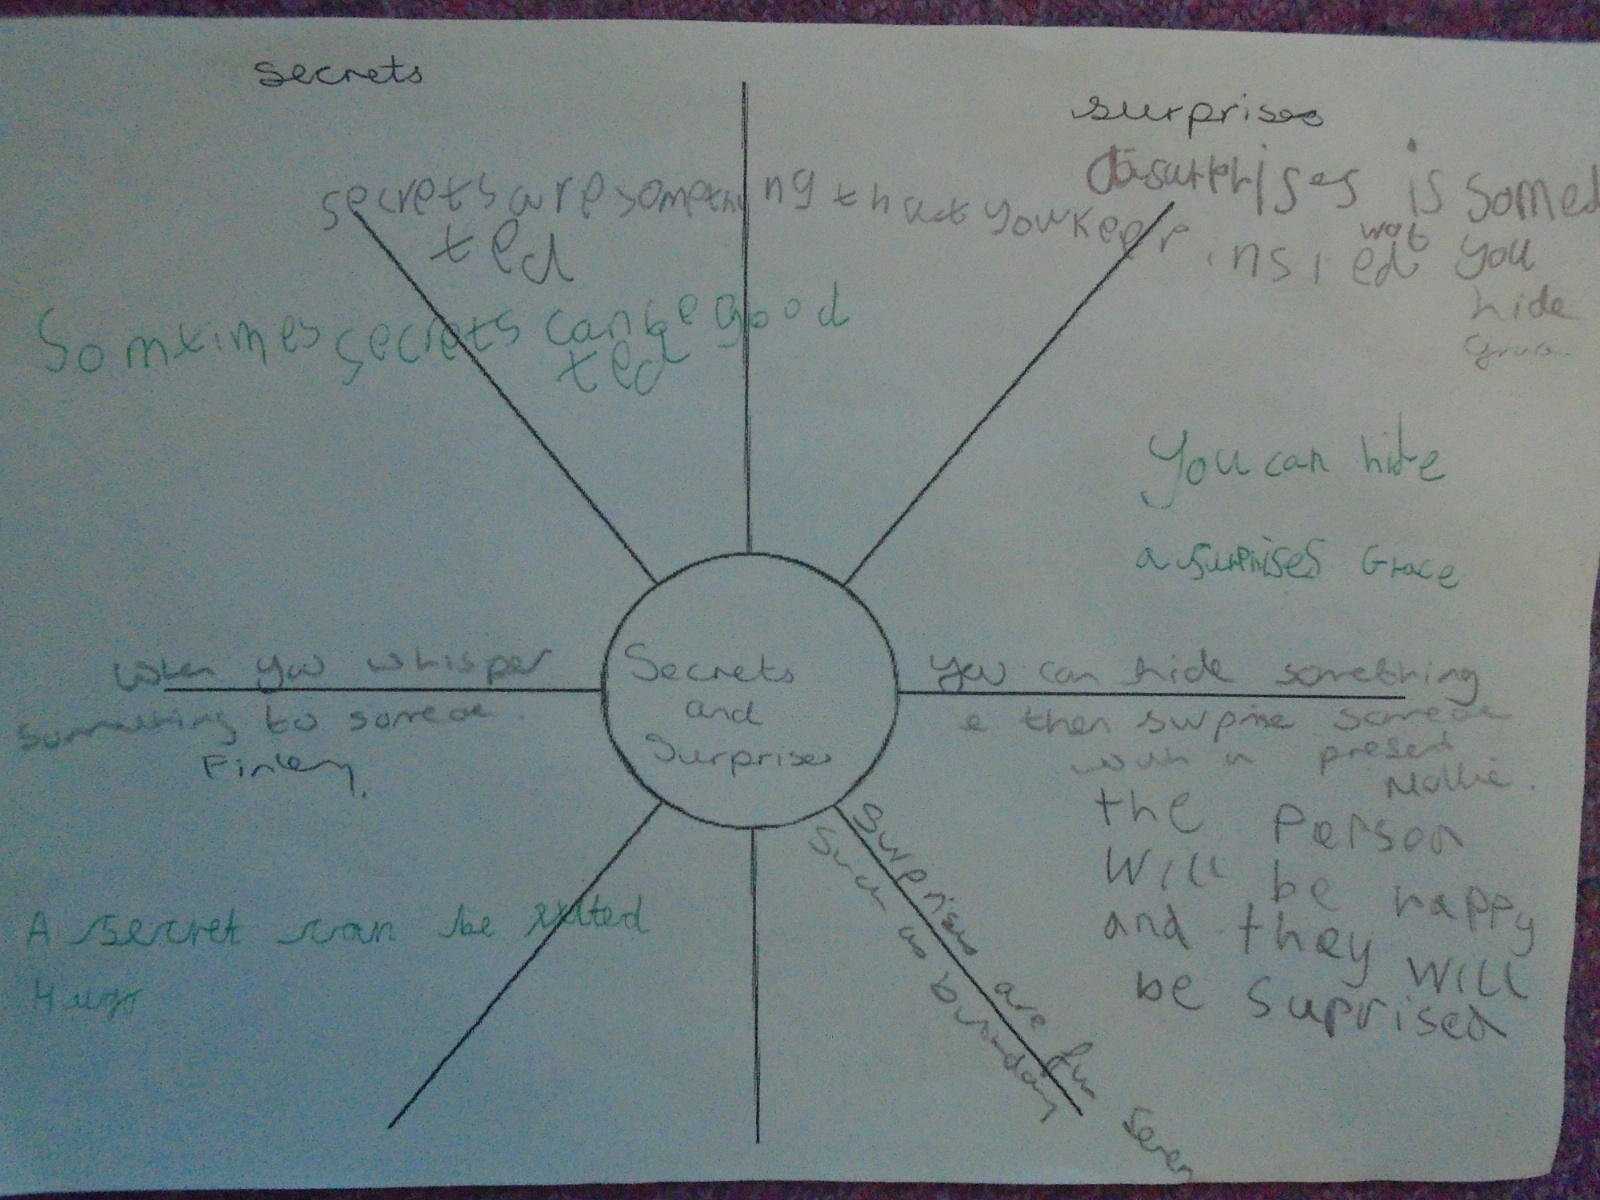 secrets
surprises
secrets are something that you keep insied
ted
surprises is somed
wot you
hide
Somtimes secrets can be good
ted
You can hide
a surprises Grace
When you whisper
something to someone.
Finley.
Secrets
and
Surprises
You can hide something
then surprise someone
with a present
Mollie.
the Person
Will be happy
and they Will
be Suprised
A secret can be
Hugo
Surprises are fun
Such as birthday